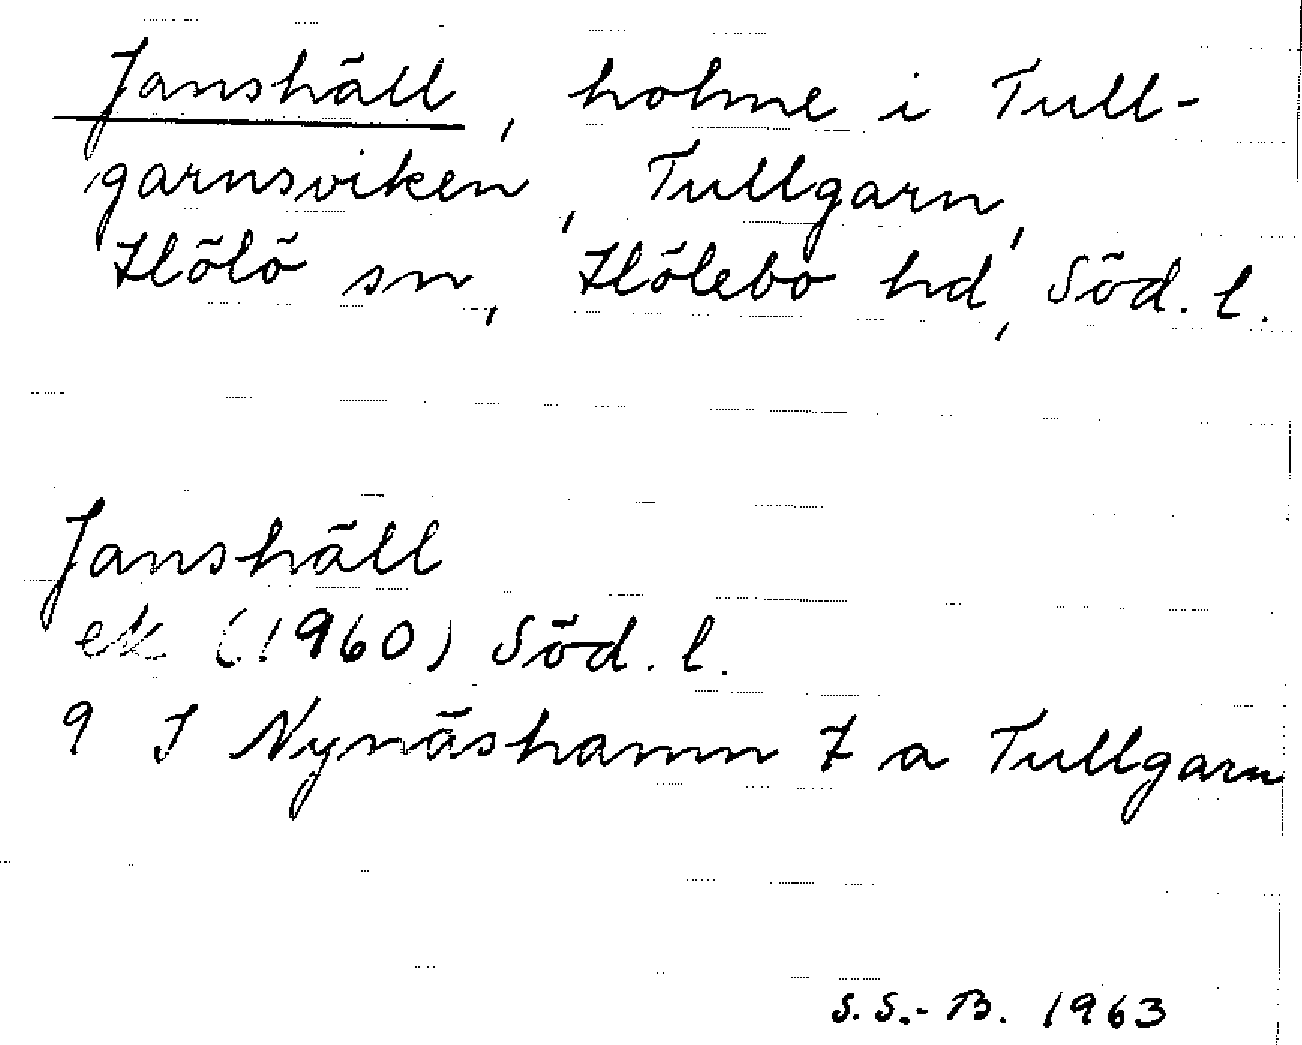 Janshäll, holme i Tull-
garnsviken, Tullgarn,
Hölö sn, Hölebo hd, Söd. l.
Janshäll
ek (1960) Söd. l.
9 I Nynäshamn 7 a Tullgarn
S. S.-B. 1963